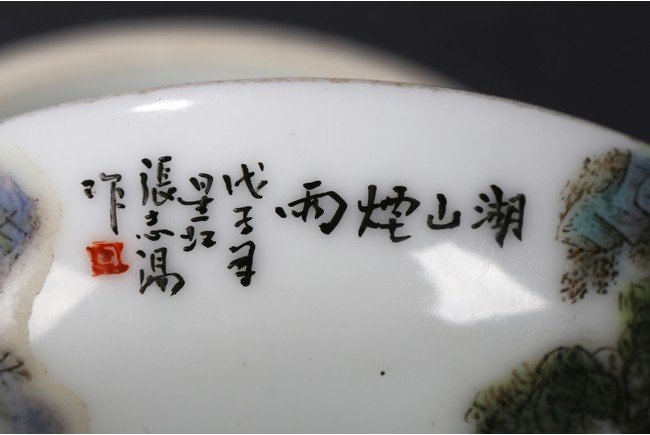 湖山煙雨
戊子夏
星江
張志湯
作